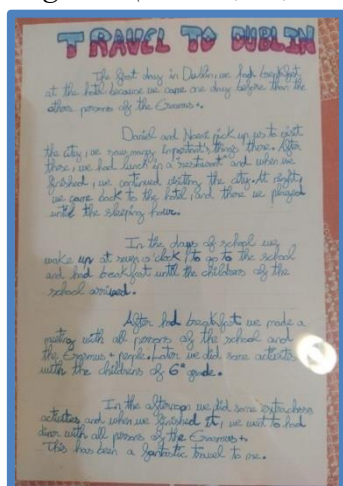 TRAVEL TO DUBLIN
The first day in Dublin, we had breakfast
at the hotel because we came one day before than the
others persons of the Erasmus+.
Daniel and Noemi pick up us to visit
the city, we saw many important's things there. After
these, we had lunch in a restaurant and when we
finished, we continued visiting the city. At night,
we came back to the hotel, and there we played
until the sleeping hour.
In the days of school we
wake up at seven o'clock to go to the school
and had breakfast until the childrens of the
school arrived.
After had breakfast we made a
meeting with all persons of the school and
the Erasmus+ people. Later we did some activities
with the childrens of 6º grade.
In the afternoon we did some extraclass
activities and when we finished it, we went to had
diner with all persons of the Erasmus+.
This has been a fantastic travel to me.